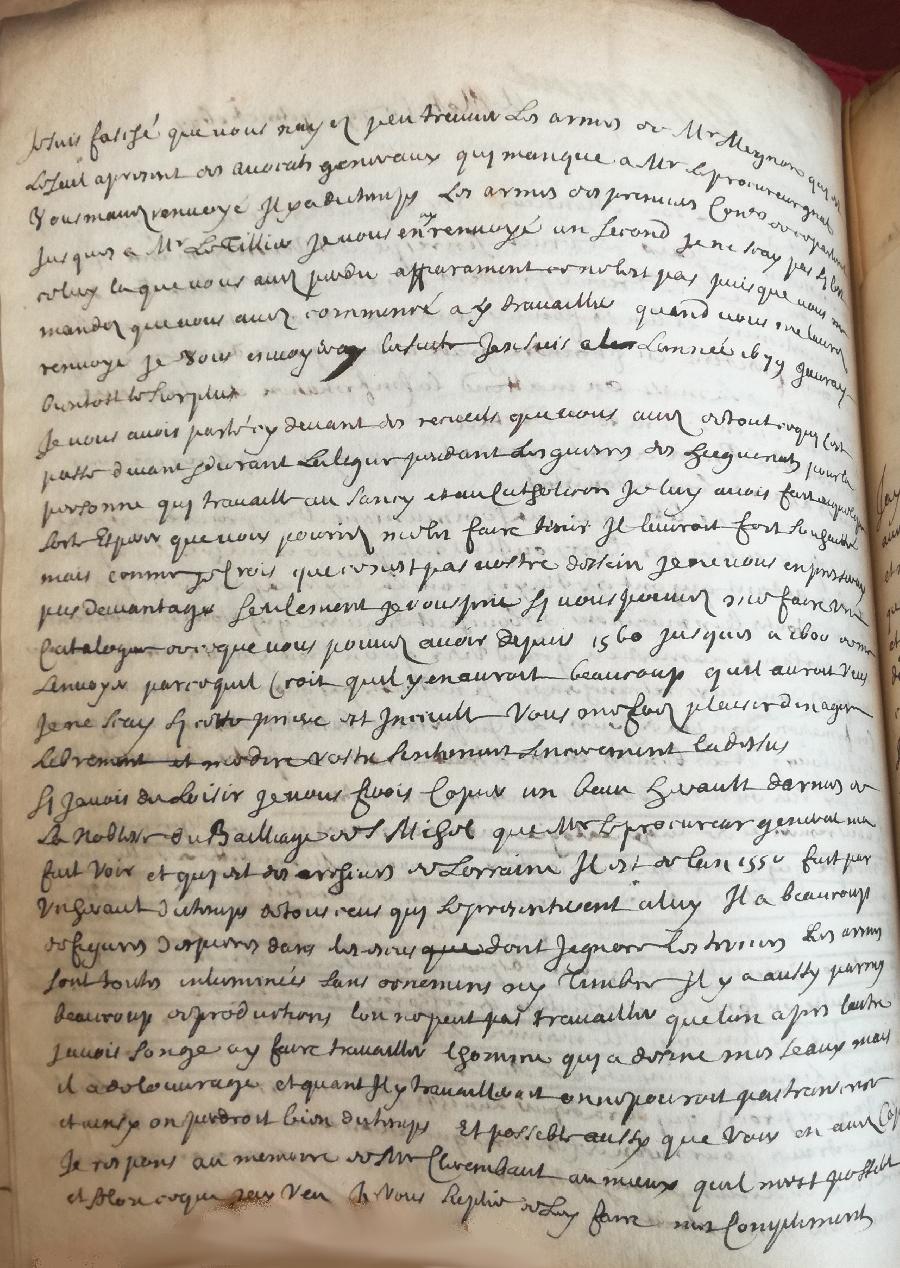 Je suis fasché que vous nayez peu trouver les armes de Mr Meignard qui est
le seul apresent des avocats generaux qui manque a Mr le procureur gnal
Vous mavez renvoyé Il y a du temps Les armes des premiers Cons de
jusques a Mr Le Tillier je vous en ay renvoyé un second je ne scay pas sy cest
celuy la que vous avez perdu apparament ce nest pas puisque vous me
mandez que vous avez commencé a y travailler quand vous me laurez
renvoyé je vous envoyeray la suite Jen suis a Lannée 1677 jauray
bientost le surplus
Je vous avois parlé cy devant des recueils que vous avez de tout ce qui sest
passé devant & durant La ligue pendant Les guerres des huguenots pour la
personne qui travaille au Sancy et au Catholicon Je luy avois fait
sorte Esperer que vous pourriez me les faire tenir Il lauroit fort souhaitté
mais comme je Crois que ce nest pas vostre dessein je ne vous en presseray
pas davantage seulement je vous prie sy vous pouvez me faire un
Catalogue de ce que vous pouvez avoir depuis 1560 jusques a 1600 de me
Lenvoyer parce quil Croit quil y en auroit beaucoup quil auroit veus
Je ne scay sy cette priere est Incivile Vous me ferez plaisir den agir
librement et me dire vostre sentiment sincerement la dessus
Sy Javois du Loisir je vous ferois Copier un beau herault darmes de
La Noblesse du Bailliage de St Mihel que Mr Le procureur general ma
fait Voir et qui est des archives de Lorraine Il est de lan 1550 fait par
Un heraut du temps de tous ceus qui se presenterent a luy Il a beaucoup
de figures dans les escus dont Jegnore Les termes Les armes
sont toutes inluminées sans ornemens ny Timbre Il y a aussy parmy
beaucoup de productions lon ne peut pas travailler que lun apres lautre
Javois songe a y faire travailler lhomme qui a desine mes seaux mais
il a de louvrage et quant Il y travailleroit on ne pouroit pas transcrire
et ainsy on perdroit bien du temps Et possible aussy que Vous en avez
Je respons au memoire de Mr Clerembaut au mieux quil mest possible
et selon ce que jay Veu Je Vous suplie de Luy faire mes Complimens